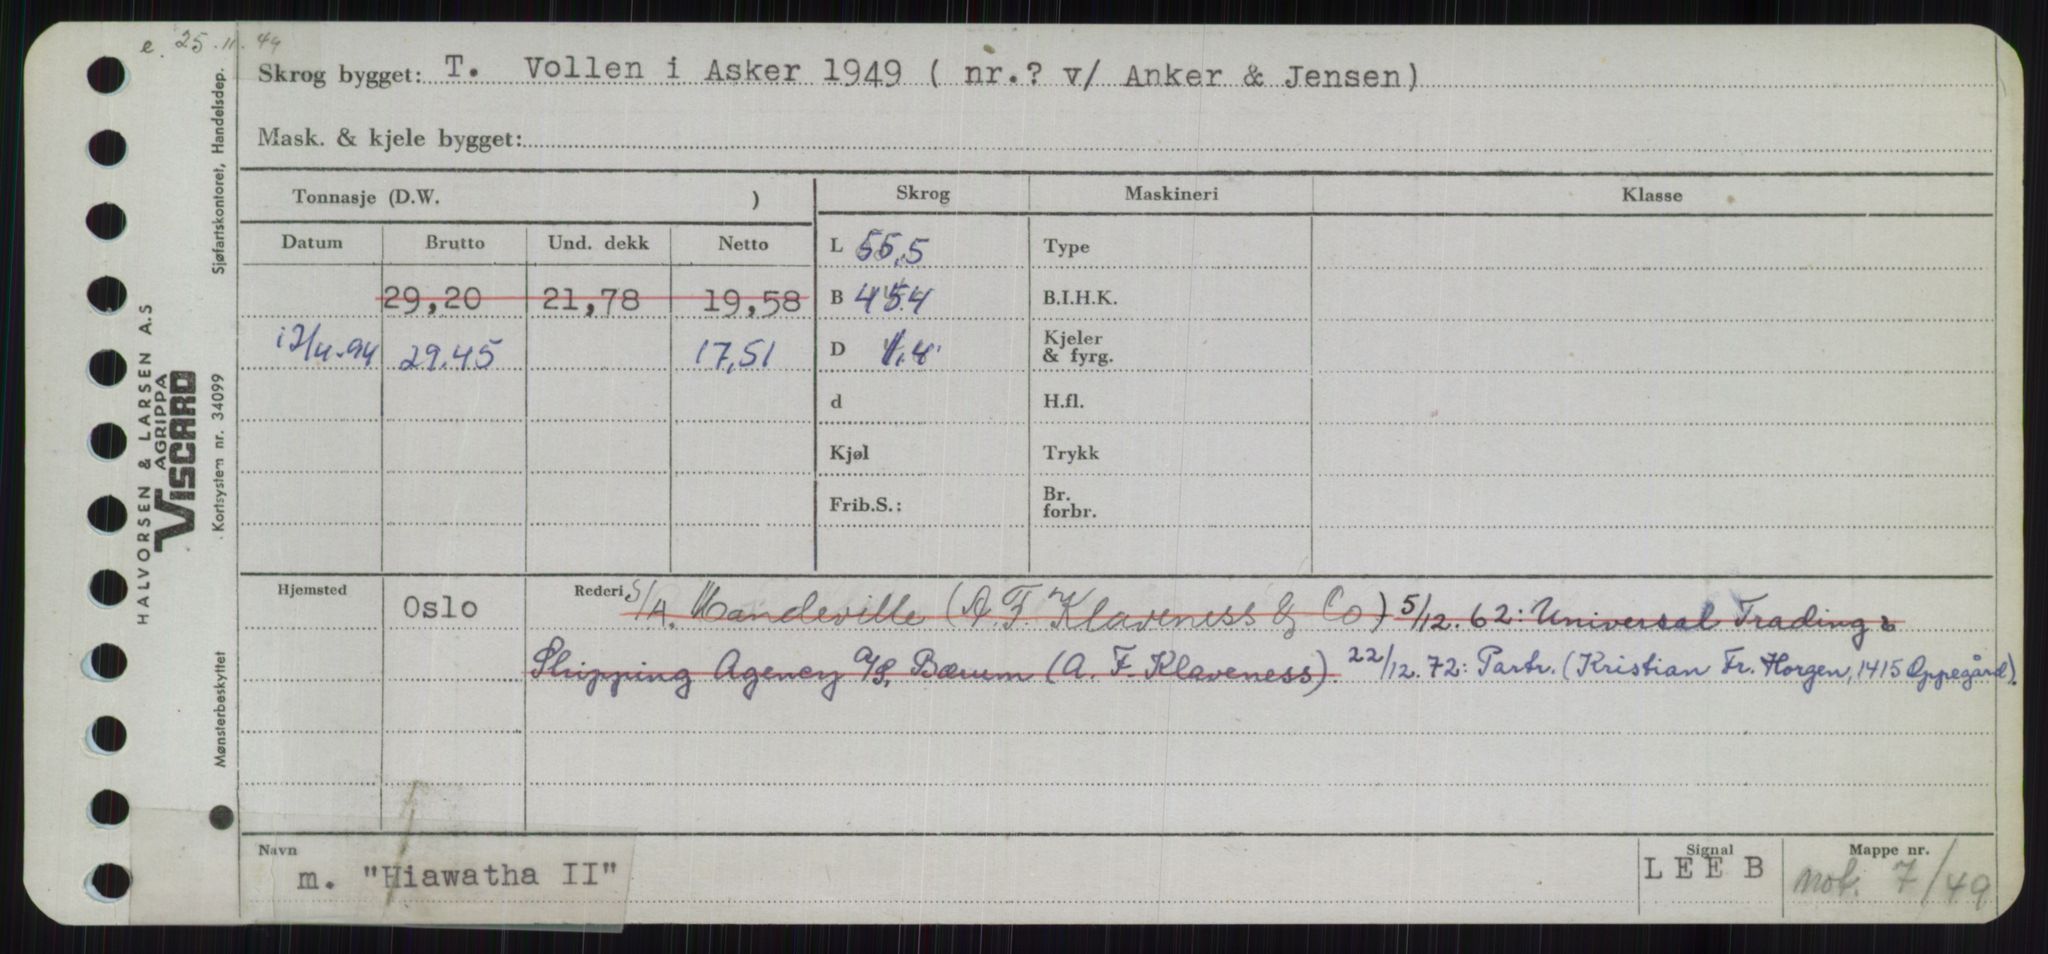 e. 25.11.49
Skrog bygget: T. Vollen i Asker 1949 ( nr.? v/ Anker & Jensen)
Mask. & kjele bygget:
Tonnasje (D.W. ) Skrog Maskineri Klasse
Datum Brutto Und. dekk Netto L 55,5 Type
29,20 21,78 19,58 B 454 B.I.H.K.
12/4.94 29.45 17,51 D 1.4 Kjeler & fyrg.
d H.fl.
Kjøl Trykk
Frib.S.: Br. forbr.
Hjemsted Oslo Rederi S/A. Mandeville (A. F. Klaveness & Co) 5/12.62: Universal Trading &
Shipping Agency A/S, Bærum (A. F. Klaveness). 22/12.72: Partr. (Kristian Fr. Horgen, 1415 Oppegård).
Navn Signal Mappe nr.
m. "Hiawatha II" LEEB not. 7/49
HALVORSEN & LARSEN A.S
AGRIPPA
VISCARD
Mønsterbeskyttet Kortsystem nr. 34099 Sjøfartskontoret, Handelsdep.